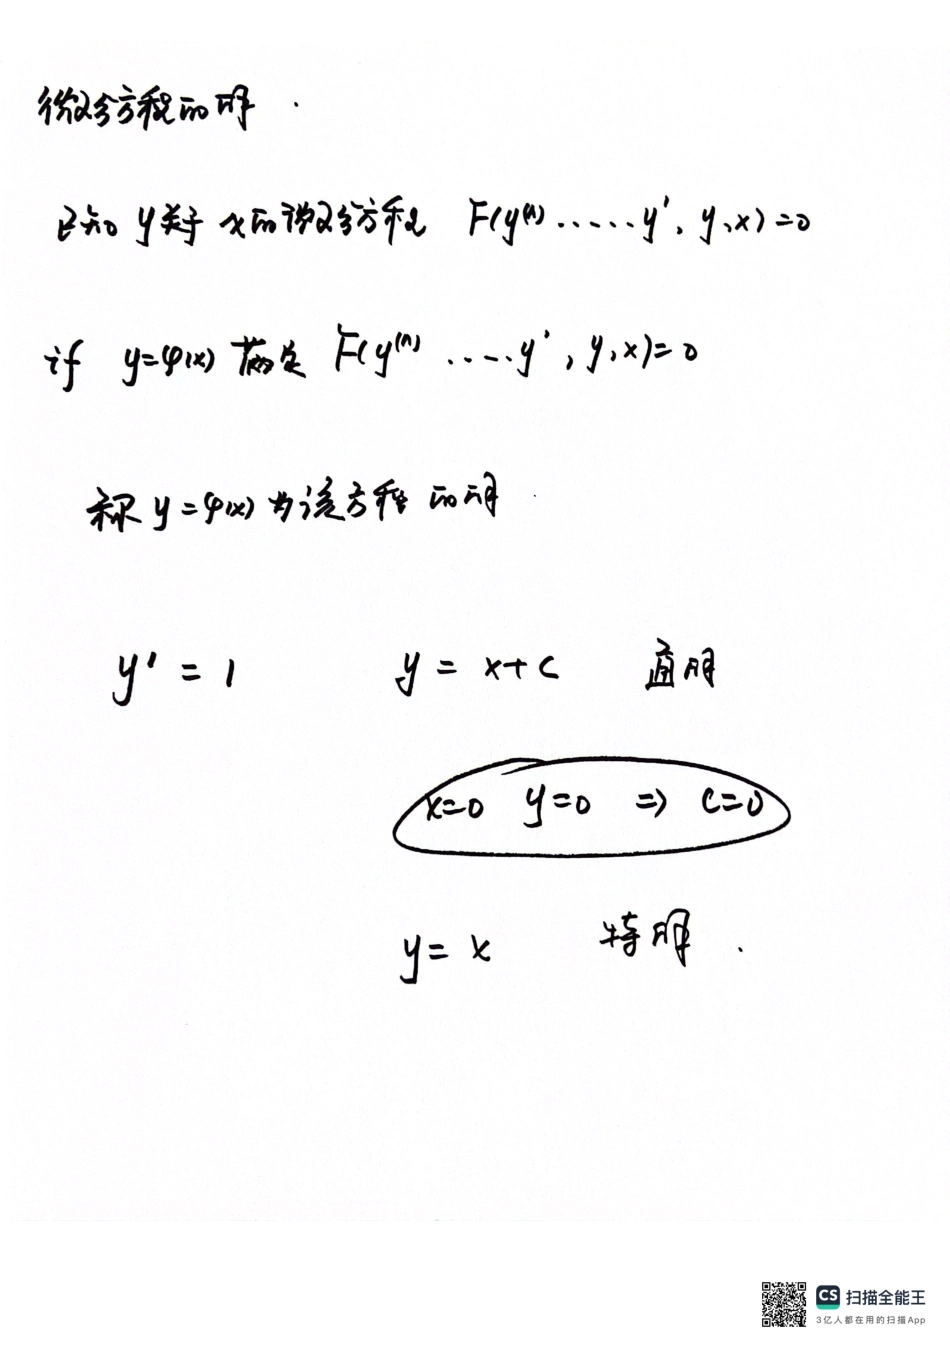 微分方程的解.
已知 y关于 x的微分方程 F(y⁽ⁿ⁾......y', y, x)=0
if y=φ(x) 满足 F(y⁽ⁿ⁾ ....y', y, x)=0
称 y=φ(x) 为该方程的解.
y'=1 y=x+c 通解
x=0 y=0 ⇒ c=0
y=x 特解.
CS 扫描全能王
3亿人都在用的扫描App